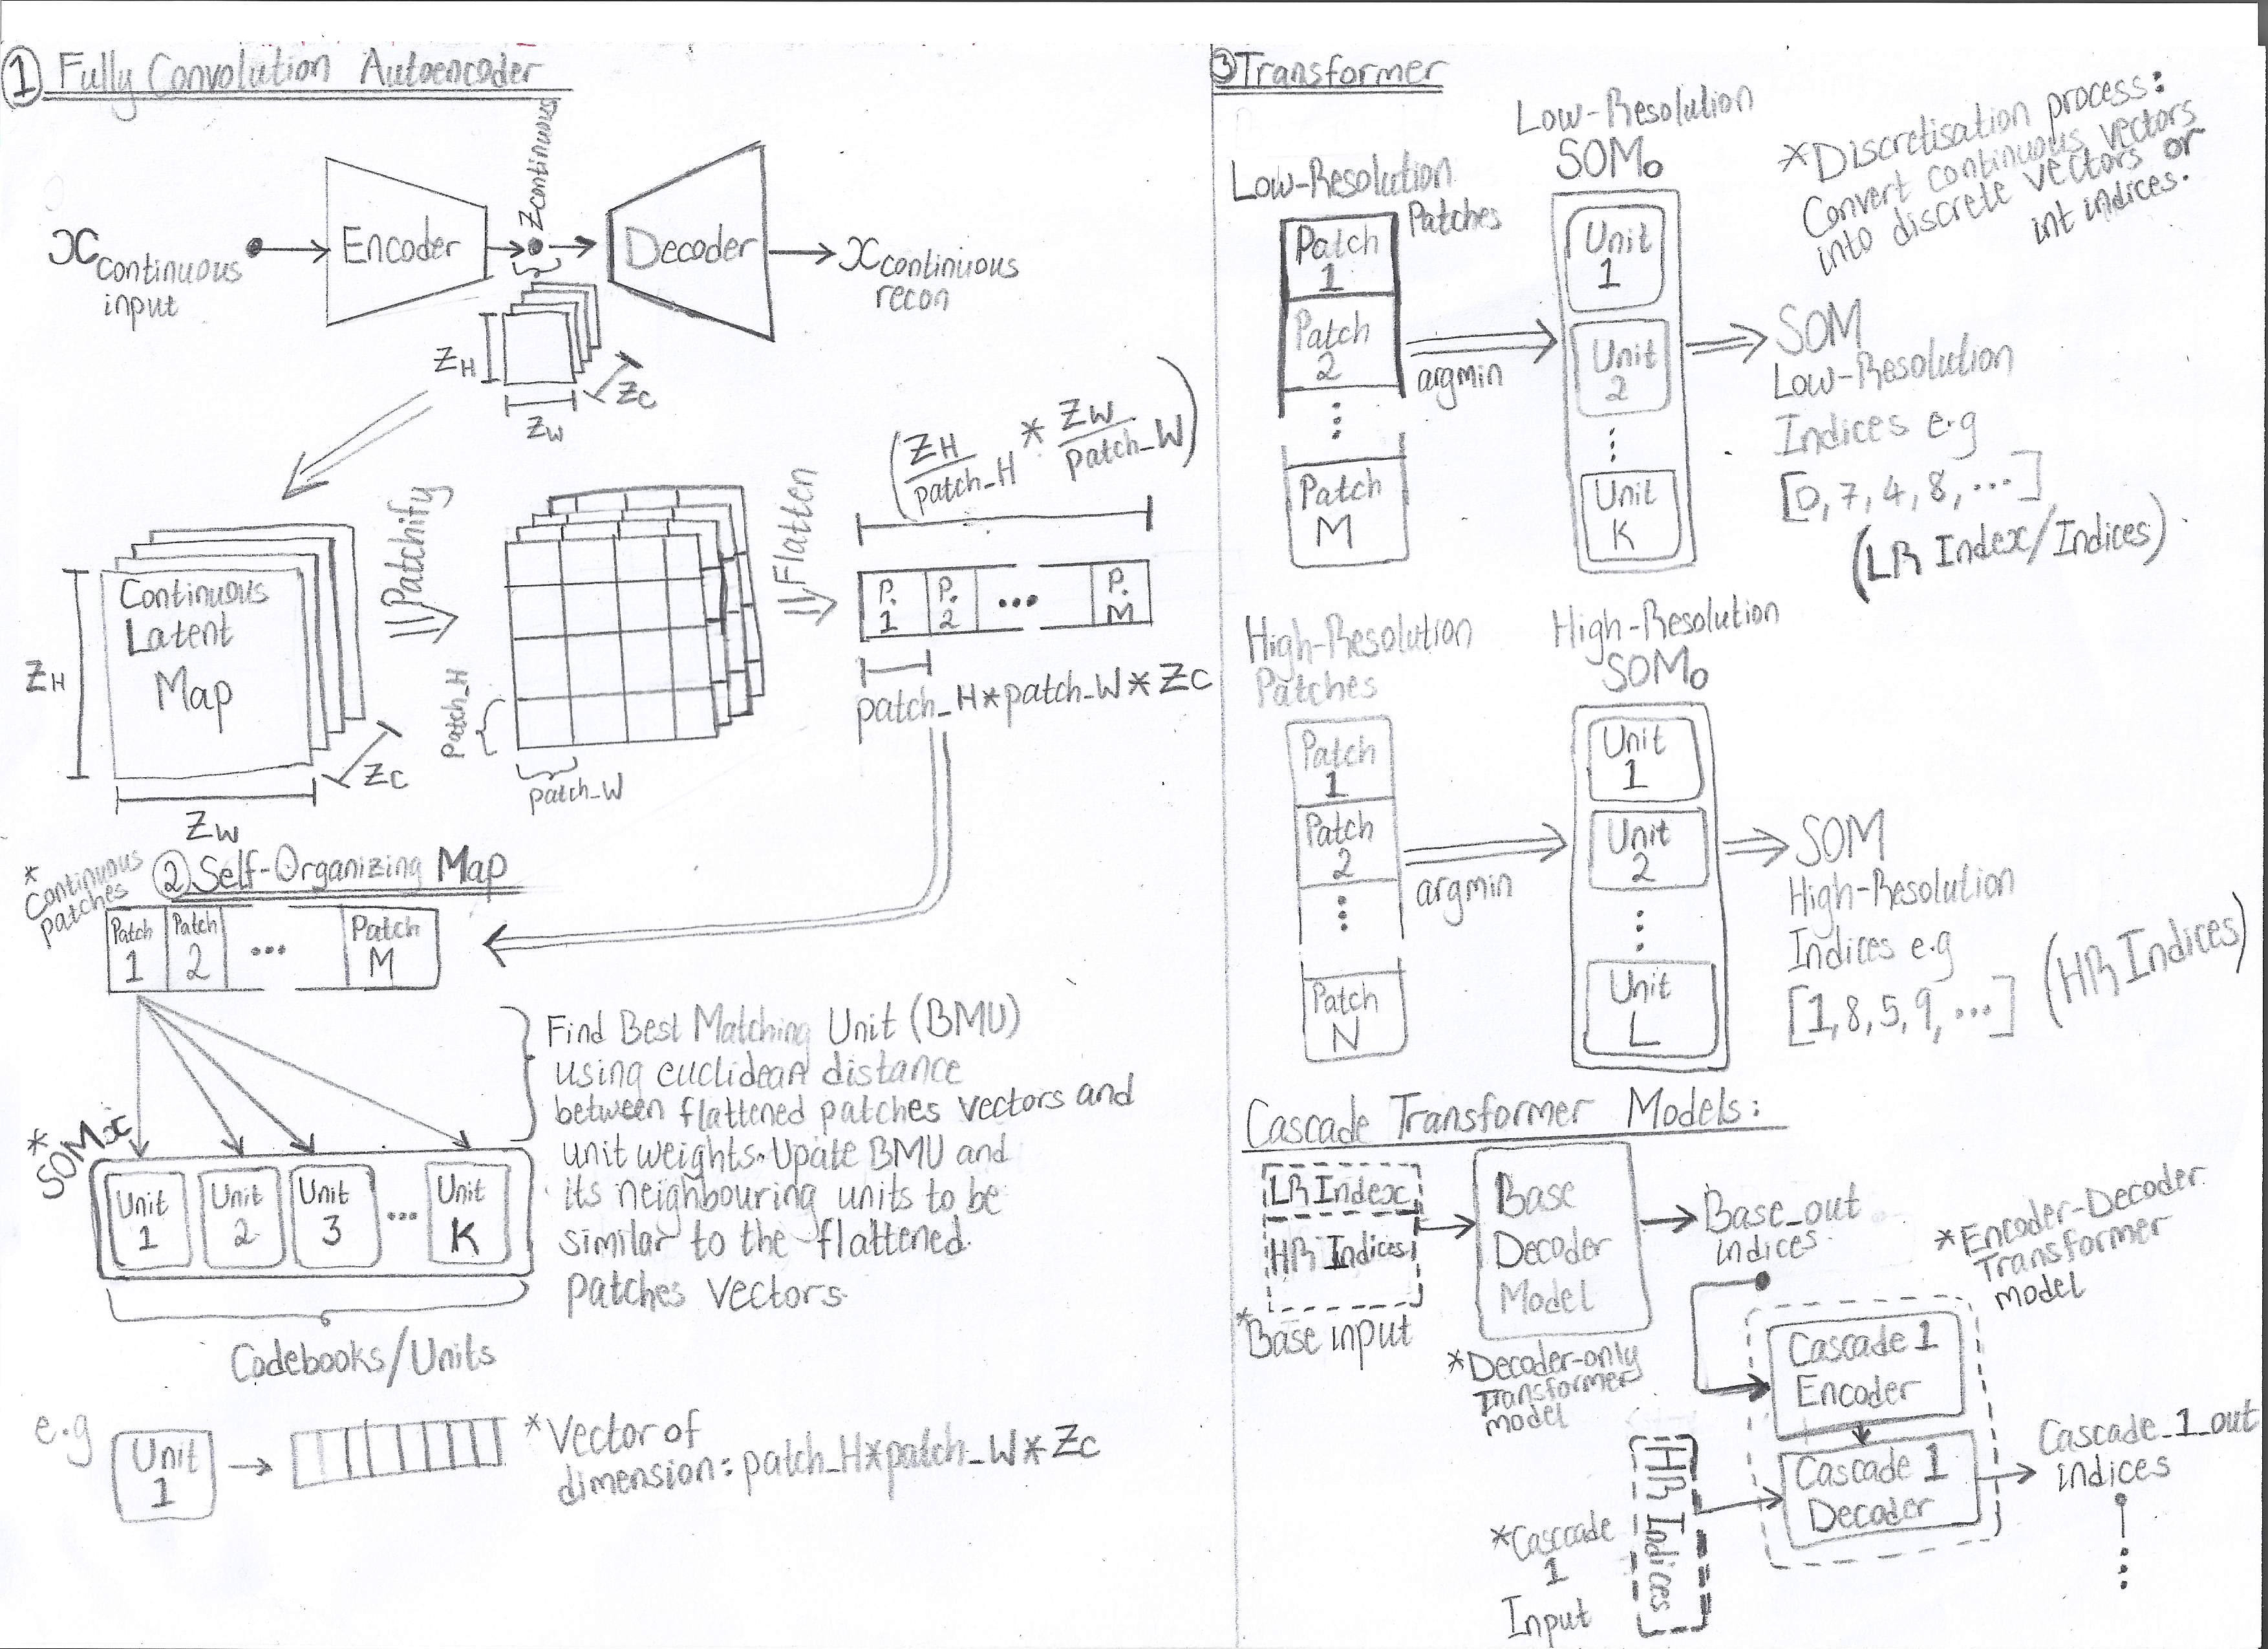 ① Fully Convolution Autoencoder
Zcontinuous
xcontinuous
input
Encoder
Decoder
xcontinuous
recon
ZH
Zw
Zc
Continuous
Latent
Map
ZH
Zw
Zc
Patchify
Patch_H
patch_W
Flatten
(ZH/patch_H * Zw/patch_W)
P.
1
P.
2
...
P.
M
patch_H*patch_W*Zc
② Self-Organizing Map
*
Continuous
patches
Patch
1
Patch
2
...
Patch
M
Find Best Matching Unit (BMU)
using euclidean distance
between flattened patches vectors and
unit weights. Upate BMU and
its neighbouring units to be
similar to the flattened
Patches vectors.
*
SOMx
Unit
1
Unit
2
Unit
3
...
Unit
K
Codebooks/Units
e.g
Unit
1
*Vector of
dimension: patch_H*patch_W*Zc
③ Transformer
Low-Resolution
Patches
Patch
1
Patch
2
Patch
M
argmin
Low-Resolution
SOM0
Unit
1
Unit
2
Unit
K
*Discretisation process:
Convert continuous vectors
into discrete vectors or
int indices.
SOM
Low-Resolution
Indices e.g
[0, 7, 4, 8, ...]
(LR Index/Indices)
High-Resolution
Patches
Patch
1
Patch
2
Patch
N
argmin
High-Resolution
SOM0
Unit
1
Unit
2
Unit
L
SOM
High-Resolution
Indices e.g
[1, 8, 5, 9, ...]
(HR Indices)
Cascade Transformer Models:
LR Index
HR Indices
*Base input
Base
Decoder
Model
*Decoder-only
Transformer
model
Base_out
indices
*Encoder-Decoder
Transformer
model
Cascade 1
Encoder
Cascade 1
Decoder
Cascade_1_out
indices
HR Indices
*Cascade
1
Input